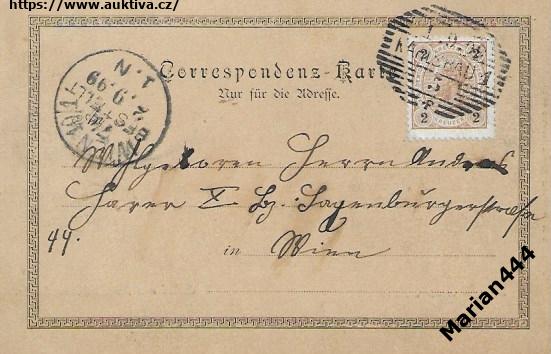 https://www.auktiva.cz/
Correspondenz-Karte
Nur für die Adresse.
2 2
WIEN 10/1
BESTELLT
2.9.99
1.N
Wohlgeboren Herrn Andreas
Harer X Bz. Laxenburgerstraße
44.
in Wien
Marian444